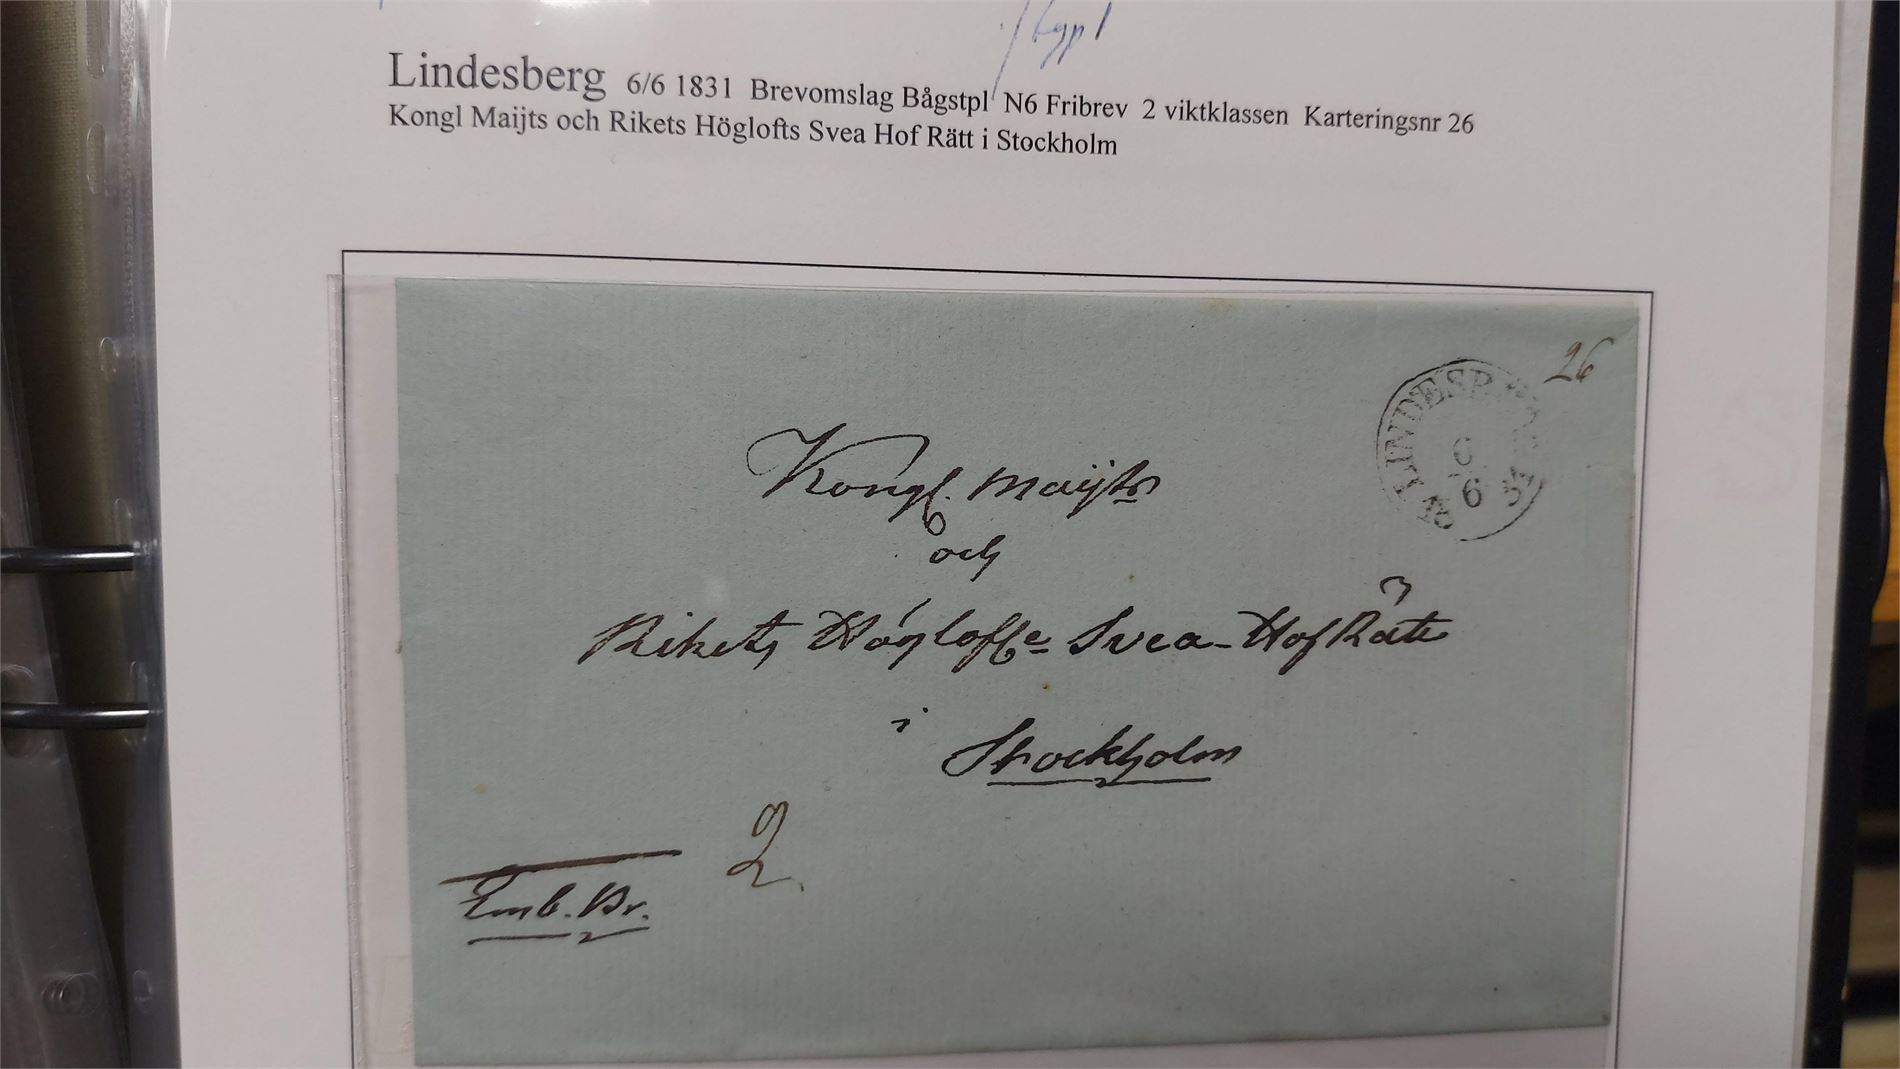 Lindesberg 6/6 1831 Brevomslag Bågstpl N6 Fribrev 2 viktklassen Karteringsnr 26
Kongl Maijts och Rikets Höglofts Svea Hof Rätt i Stockholm
26
LINDESB
6
6
Kongl. Maijts
och
Rikets Höglofl. Svea-HofRätt
i
Stockholm
2.
Emb. Br.